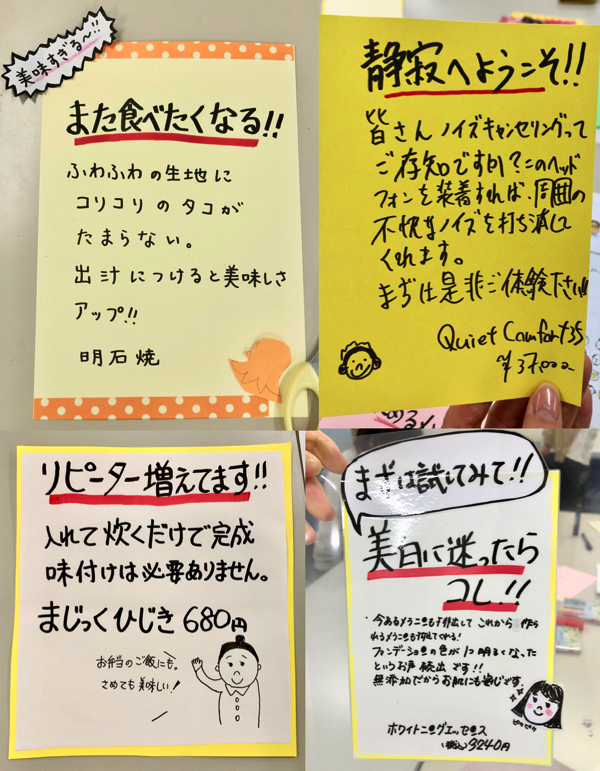 美味すぎる〜!!
また食べたくなる!!
ふわふわの生地に
コリコリのタコが
たまらない。
出汁につけると美味しさ
アップ!!
明石焼
静寂へようこそ!!
皆さんノイズキャンセリングって
ご存知ですか?このヘッド
フォンを装着すれば、周囲の
不快なノイズを打ち消して
くれます。
まずは是非ご体験下さい!!
Quiet Comfort35
¥37,000-
リピーター増えてます!!
入れて炊くだけで完成
味付けは必要ありません。
まじっくひじき 680円
お弁当のご飯にも。
さめても美味しい!
まずは試してみて!!
美白に迷ったら
コレ!!
今あるメラニンも排出して これから 作ら
れるメラニンも抑えてくれる!
ファンデーションの色が1つ明るくなった
というお声続出です!!
無添加だからお肌にも安心です。
ピカピカ
ホワイトニングエッセンス
(税込) 3240円